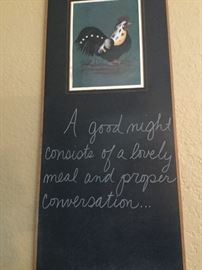 A good night
consists of a lovely
meal and proper
conversation...